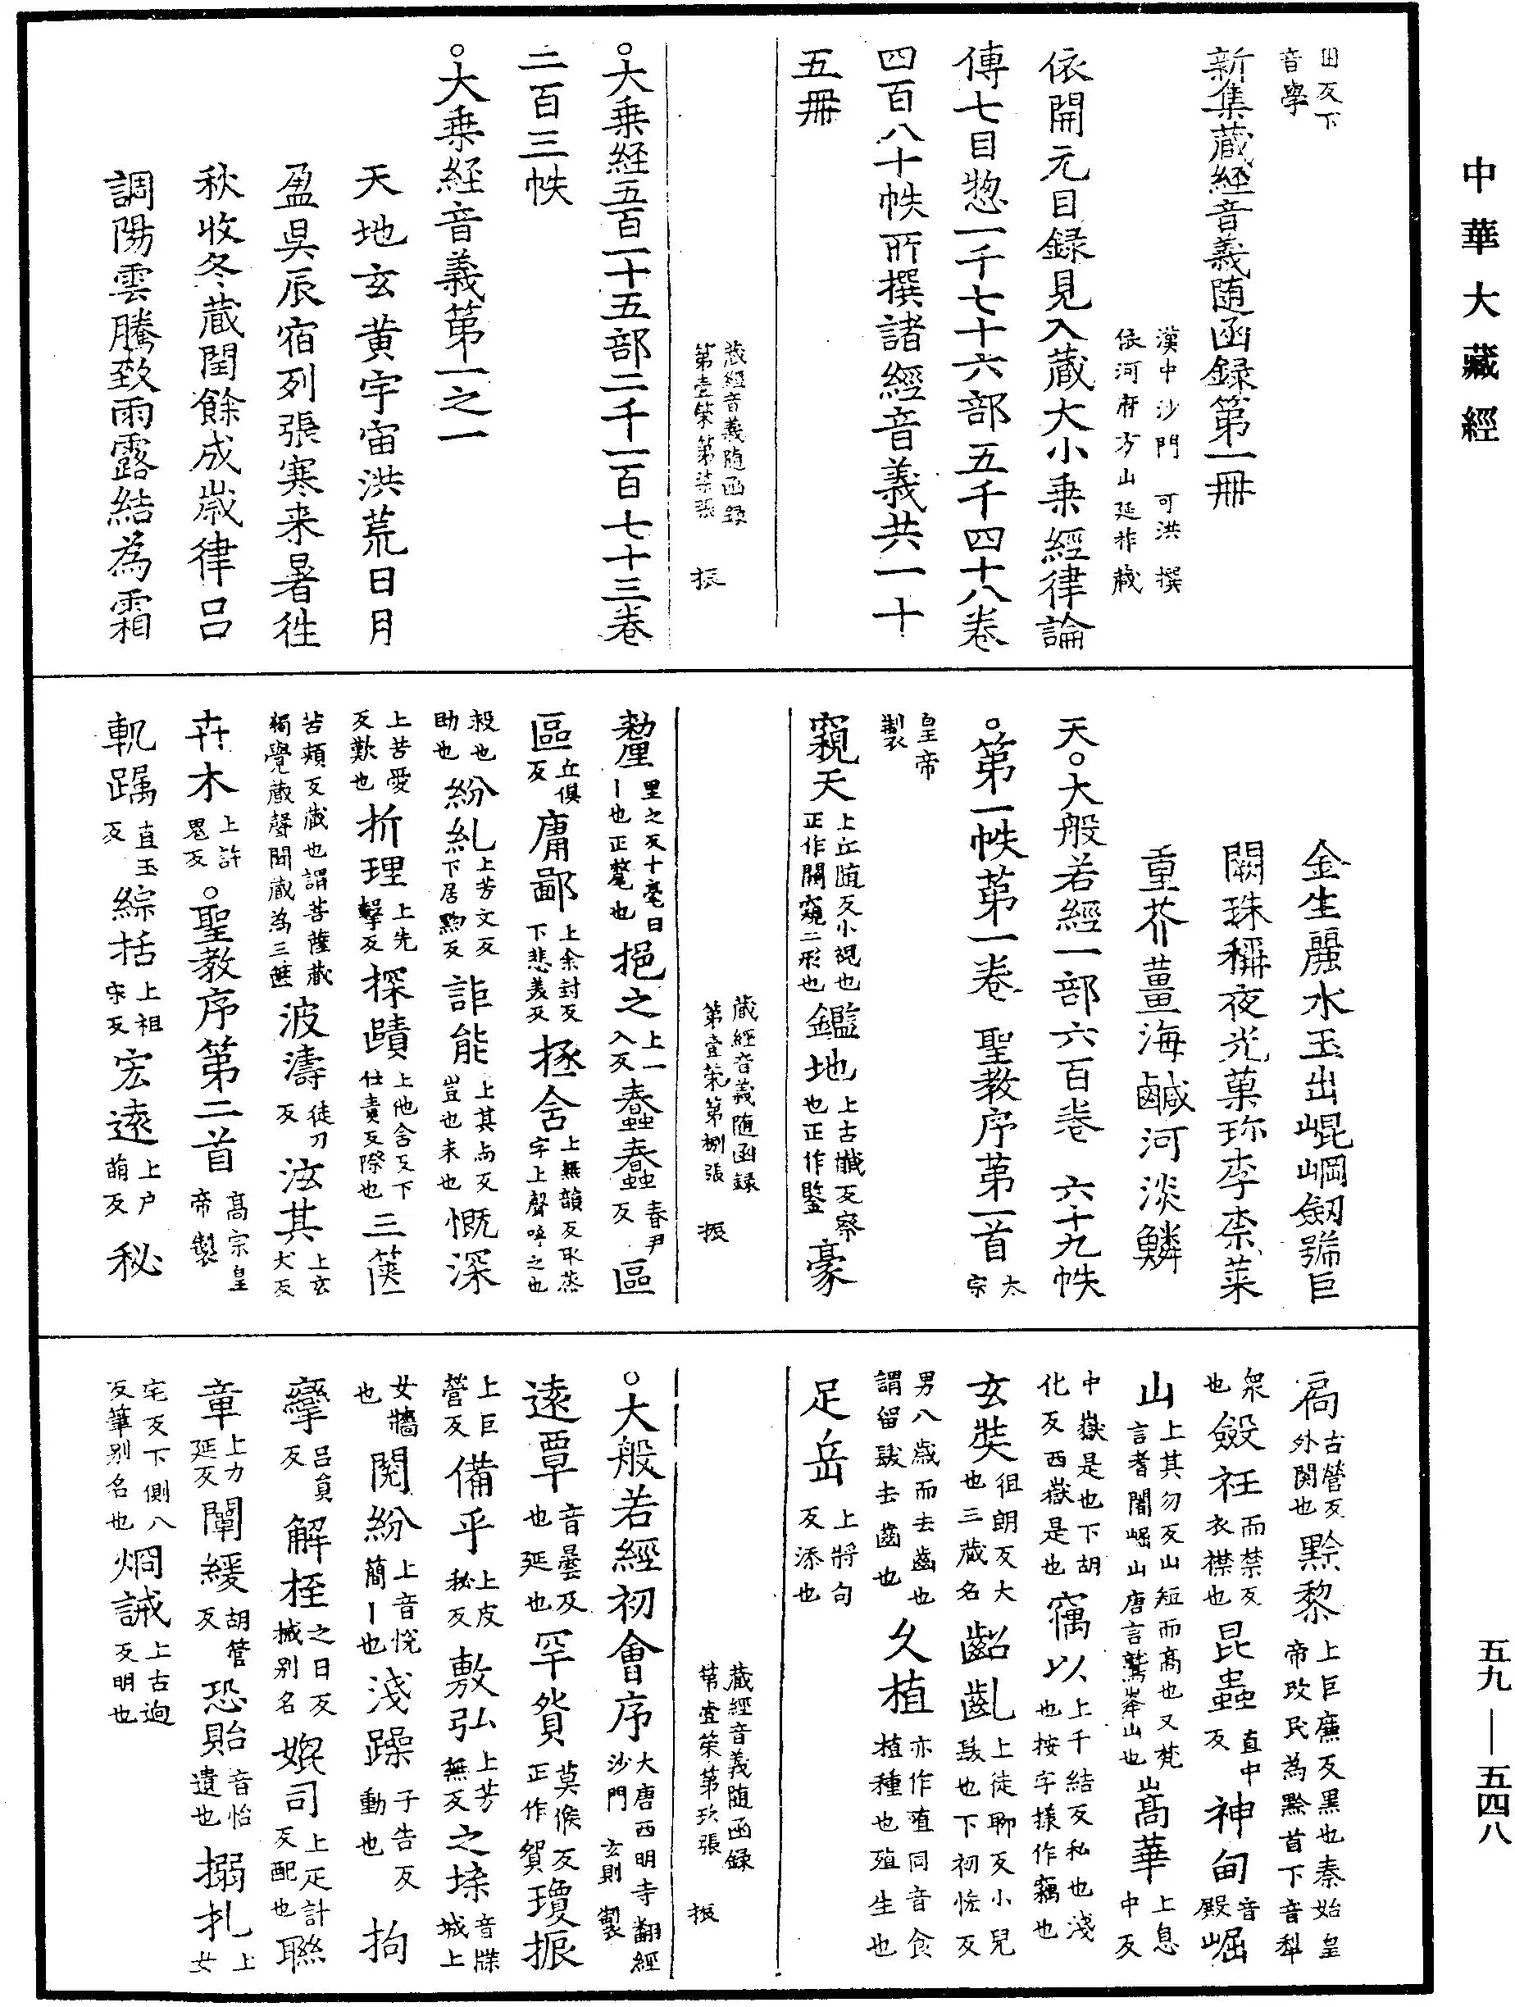 中華大藏經
田反下
音學
新集藏経音義随函録第一冊
漢中沙門 可洪 撰
依河府方山延祚藏
依開元目録見入蔵大小乗經律論
傳七目惣一千七十六部五千四十八卷
四百八十帙所撰諸經音義共一十
五冊
藏經音義随函録
第壹第柒張 振
。大乗経五百一十五部二千一百七十三卷
二百三帙
。大乗経音義第一之一
天地玄黄宇宙洪荒日月
盈昃辰宿列張寒来暑徃
秋收冬蔵閏餘成嵗律吕
調陽雲騰致雨露結為霜
金生麗水玉出崐崗劔號巨
闕珠稱夜光菓珎李柰菜
重芥薑海鹹河淡鱗
天。大般若經一部六百卷 六十九帙
。第一帙第一卷 聖教序第一首 太宗
皇帝
製
窺天 上丘随反小視也正作闚窺二形也 鑑地 上古懺反察也正作鑒 豪
藏經音義随函録
第壹第捌張 振
𣯛 里之反十毫曰丨也正氂也 挹之 上一入反 蠢蠢 春尹反 區
區 丘俱反 庸鄙 上余封反下悲美反 拯含 上無韻反取蒸字上聲呼之也
殺也助也 紛糺 上芳文反下居黝反 詎能 上其呂反豈也未也 慨深
上苦愛反歎也 折理 上先擊反 探賾 上他含反下仕責反際也 三篋
苦頰反蔵也謂菩薩蔵獨覺蔵聲聞蔵為三篋 波濤 徒刀反 泫其 上玄犬反
卉木 上許鬼反 。聖教序第二首 高宗皇帝製
軌躅 直玉反 綜括 上祖宋反 宏遠 上户萌反 秘
扃 古營反外閉也 黔黎 上巨廉反黒也秦始皇帝攺民為黔首下音梨
衆也 斂衽 而禁反衣襟也 昆蟲 直中反 神甸 音殿 崛
山 上其勿反山短而髙也又梵言耆闍崛山唐言鷲峯山也 嵩華 上息中反
中嶽是也下胡化反西嶽是也 竊以 上千結反私也淺也按字樣作竊也
玄奘 徂朗反大也三蔵名 齠齔 上徒聊反小兒髮也下初恡反
男八歳而去齒也謂留髮去齒也 久植 亦作殖同音食植種也殖生也
足岳 上將句反添也
藏經音義随函録
第壹第玖張 振
。大般若經初會序 大唐西明寺翻經沙門玄則製
逺覃 音曇及也延也 罕貿 莫候反正作貿 瓊振
上巨營反 備乎 上皮秘反 敷弘 上芳無反 之堞 音牒城上
女牆也 閲紛 上音恱簡丨也 淺躁 子告反動也 拘
攣 吕貟反 解桎 之日反械别名 媲司 上疋計反配也 聯
章 上力延反 闡緩 胡管反 恐貽 音怡遺也 搦札 上女
宅反下側八反筆别名也 炯誡 上古迥反明也
五九—五四八